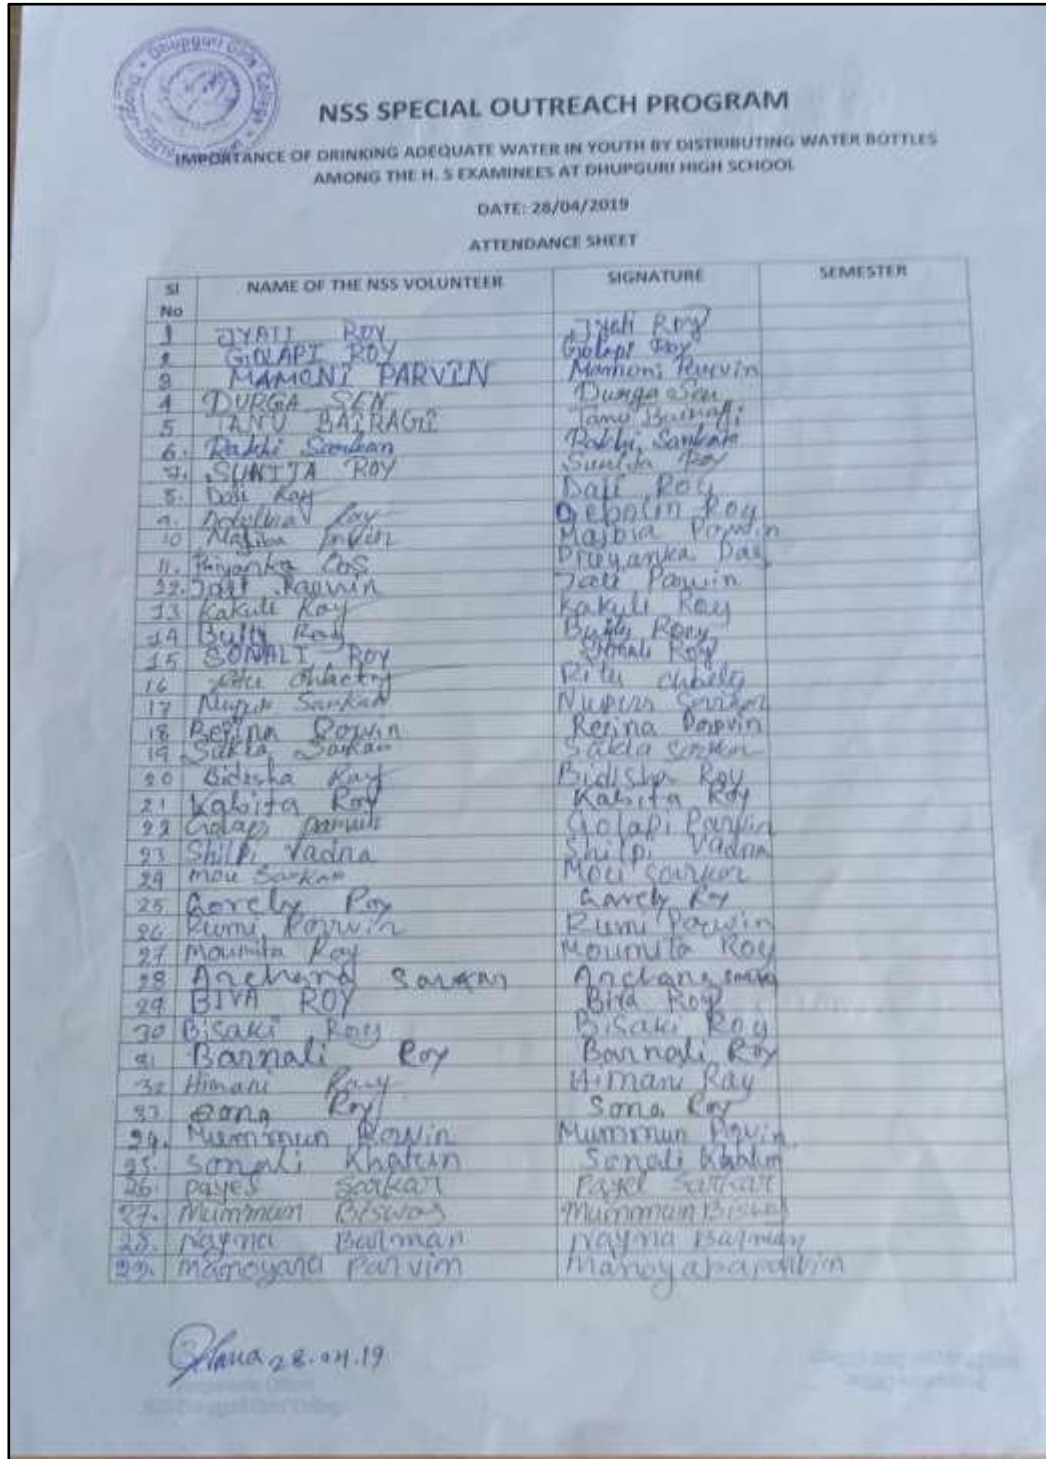 Dhupguri Girls' College
NSS SPECIAL OUTREACH PROGRAM
IMPORTANCE OF DRINKING ADEQUATE WATER IN YOUTH BY DISTRIBUTING WATER BOTTLES
AMONG THE H. S EXAMINEES AT DHUPGURI HIGH SCHOOL
DATE: 28/04/2019
ATTENDANCE SHEET
Sl No NAME OF THE NSS VOLUNTEER SIGNATURE SEMESTER
1 JYATI ROY Jyati Roy
2 GOLAPI ROY Golapi Roy
3 MAMONI PARVIN Mamoni Parvin
4 DURGA SEN Durga Sen
5 TANU BAIRAGI Tanu Bairagi
6. Rakhi Sarkar Rakhi Sarkar
7. SUNITA ROY Sunita Roy
8. Roy Roy
9. Roy Roy
10
11. Priyanka Das Priyanka Das
12. Parvin Parwin
13 Kakuli Roy Kakuli Roy
14 Bulty Roy Bulty Roy
15 SONALI ROY Sonali Roy
16 Ritu
17 Nupur Sarkar Nupur Sarkar
18 Parvin Parvin
19 Sarkar Sarkar
20 Bidisha Roy Bidisha Roy
21 Kabita Roy Kabita Roy
22 Golapi Parvin Golapi Parvin
23 Shilpi Vadra Shilpi Vadra
24 Mou Sarkar Mou Sarkar
25 Roy Roy
26 Rumi Parwin Rumi Parwin
27 Moumita Roy Moumita Roy
28 Archana Sarkar Archana Sarkar
29 BIVA ROY Biva Roy
30 Bisaki Roy Bisaki Roy
31 Barnali Roy Barnali Roy
32 Himani Ray Himani Ray
33 Sona Roy Sona Roy
34. Mummun Parvin Mummun Parvin
25. Sonali Khatun Sonali Khatun
26. Payel Sarkar Payel Sarkar
27. Mummun Biswas Mummun Biswas
28. Nayna Barman Nayna Barman
29. Manoyara Parvim Manoyara parvim
28.04.19